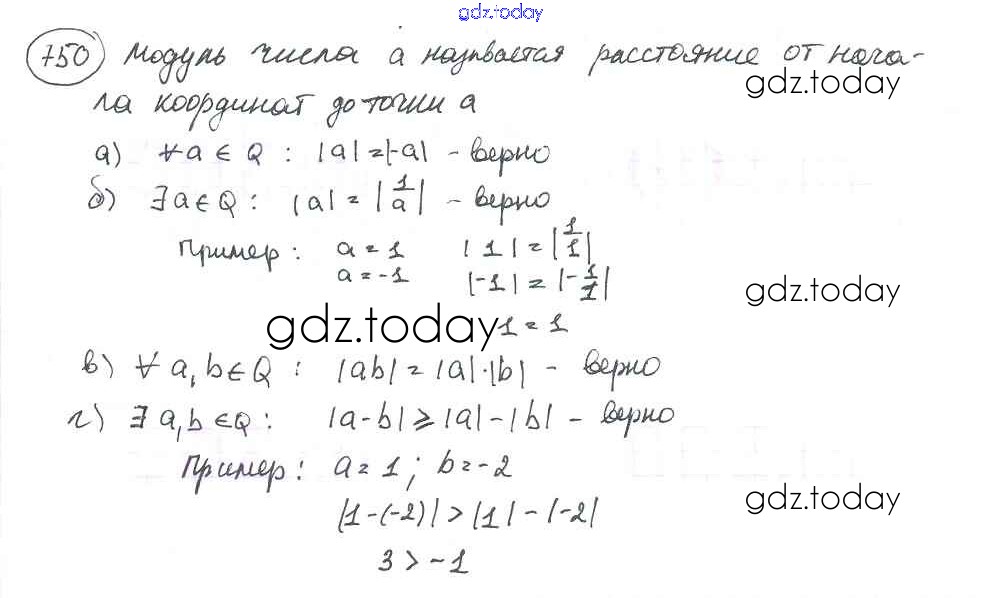 gdz.today
750 Модуль числа a называется расстояние от нача-
gdz.today
ла координат до точки a
а) ∀a ∈ Q : |a| = |-a| - верно
б) ∃a ∈ Q : |a| = |1/a| - верно
Пример : a = 1 |1| = |1/1|
a = -1 |-1| = |-1/1|
gdz.today
gdz.today 1 = 1
в) ∀ a, b ∈ Q : |ab| = |a|·|b| - верно
г) ∃ a, b ∈ Q : |a-b| ⩾ |a| - |b| - верно
Пример : a = 1 ; b = -2
gdz.today
|1-(-2)| > |1| - |-2|
3 > -1